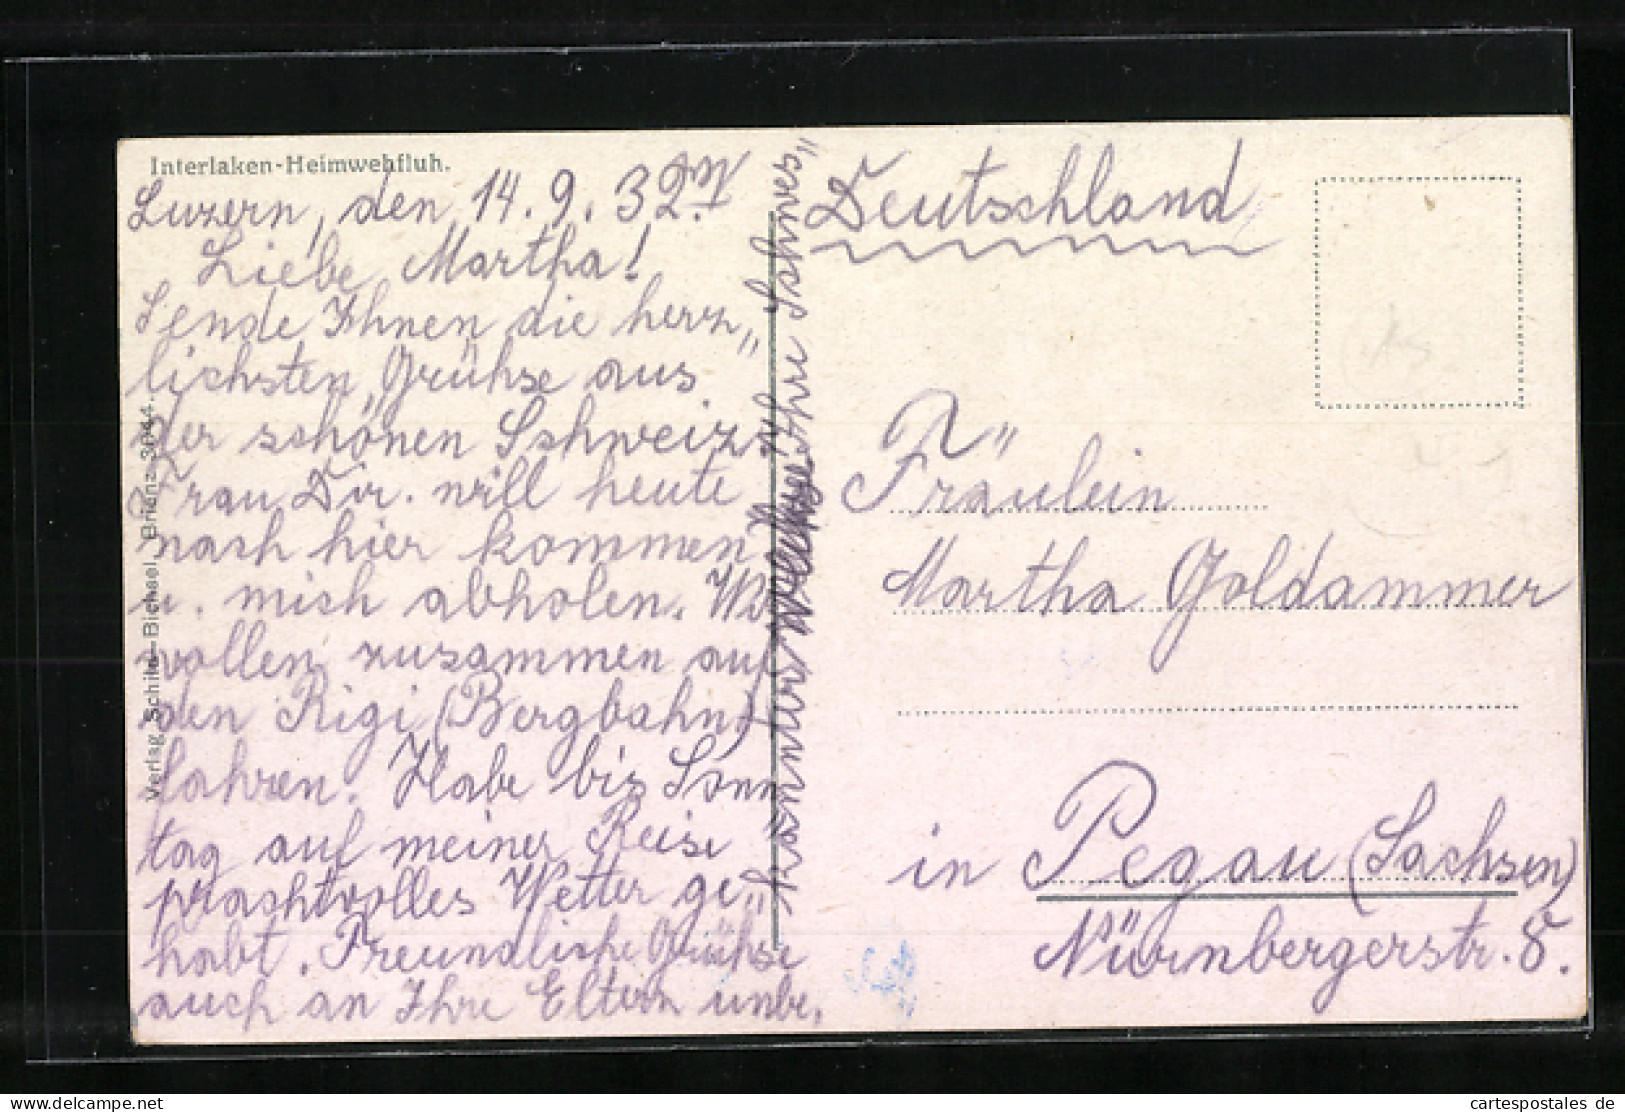 Interlaken-Heimwehfluh.
Luzern, den 14.9.32.
Liebe Martha!
Sende Ihnen die herz„
lichsten Grühse aus
der schönen Schweiz.
Frau Dir. will heute
nach hier kommen
u. mich abholen. Wir
wollen zusammen auf
den Rigi (Bergbahn)
fahren. Habe bis Sonn„
tag auf meiner Reise
prachtvolles Wetter ge„
habt. Freundliche Grühse
auch an Ihre Eltern unbe„
Verlag Schild-Bichsel, Brienz 3044.
Deutschland
Fräulein
Martha Goldammer
in Pegau (Sachsen)
Nürnbergerstr. 8.
www.cartespostales.de
cartespostales de